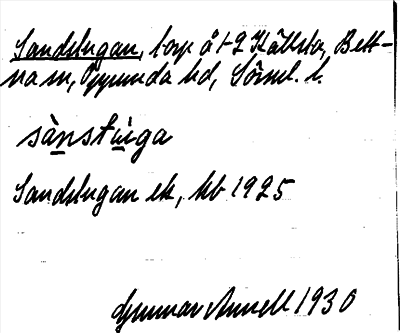 Sandstugan, torp å 1-2 Källsta, Bett-
na sn, Oppunda hd, Söml. l.
sànstùiga
Sandstugan ek, kb 1925
Gunnar Annell 1930